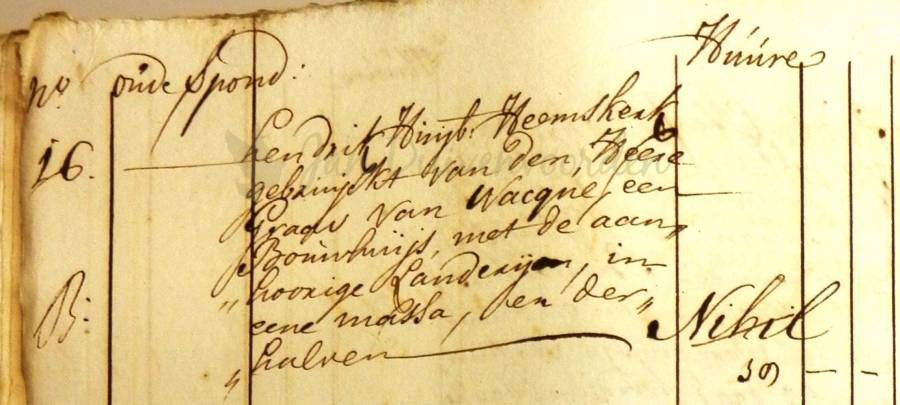 Huure
No oude Spond:
16. hendrik Huijb: Heemskerk
gebruijkt van den Heere
Graav van Wacqué, een
Bouwhuijs, met de aan„
„hoorige Landerijen, in
B: eene massa, en der„ Nihil
„halven